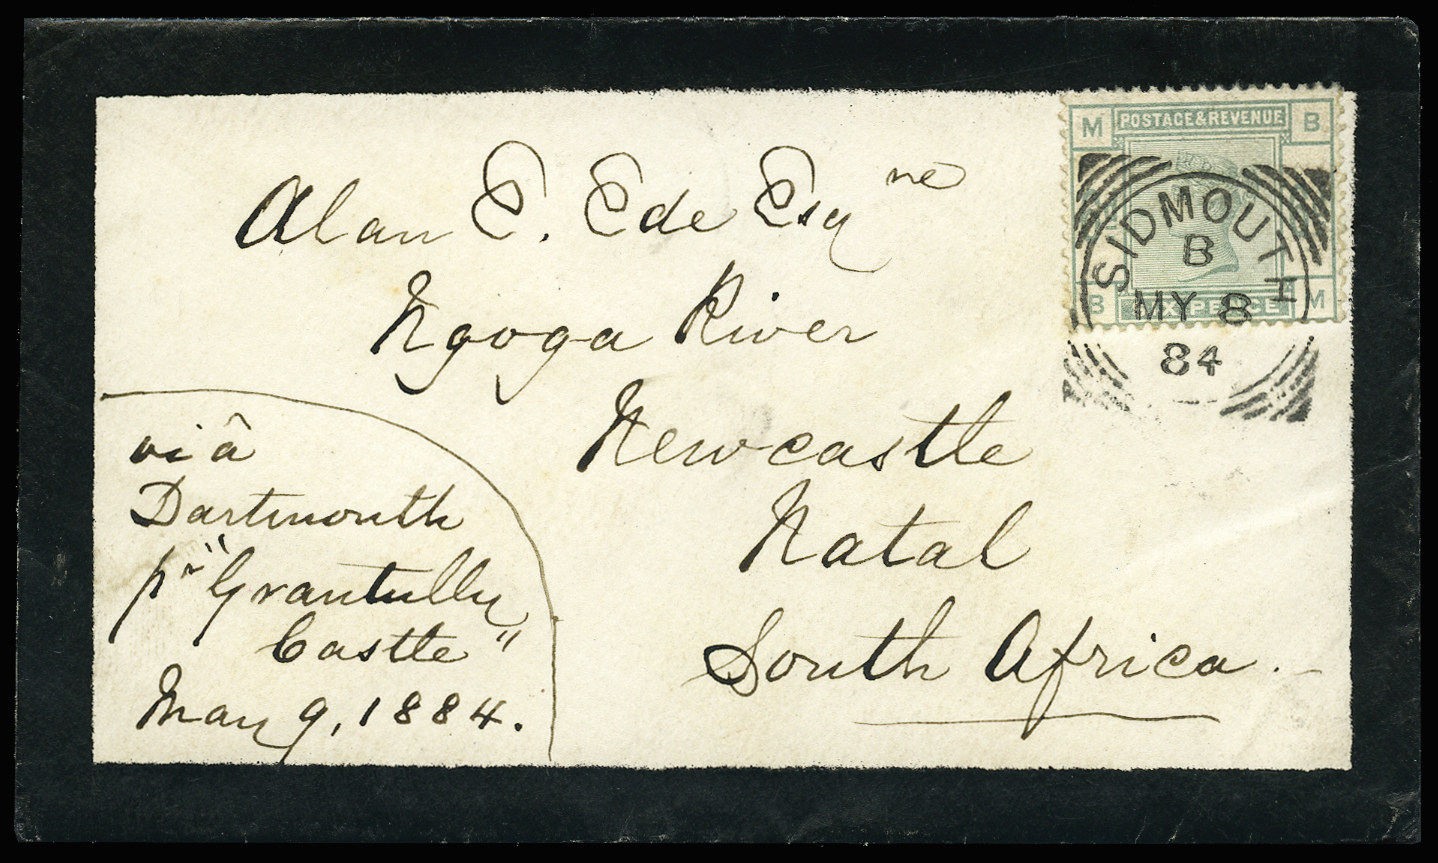 M POSTAGE & REVENUE B
SIDMOUTH
B
MY 8
84
B SIXPENCE M
Alan E. Ede Esqre
Ngoga River
Newcastle
Natal
South Africa.
viâ
Dartmouth
pr "Grantully
Castle"
May 9, 1884.